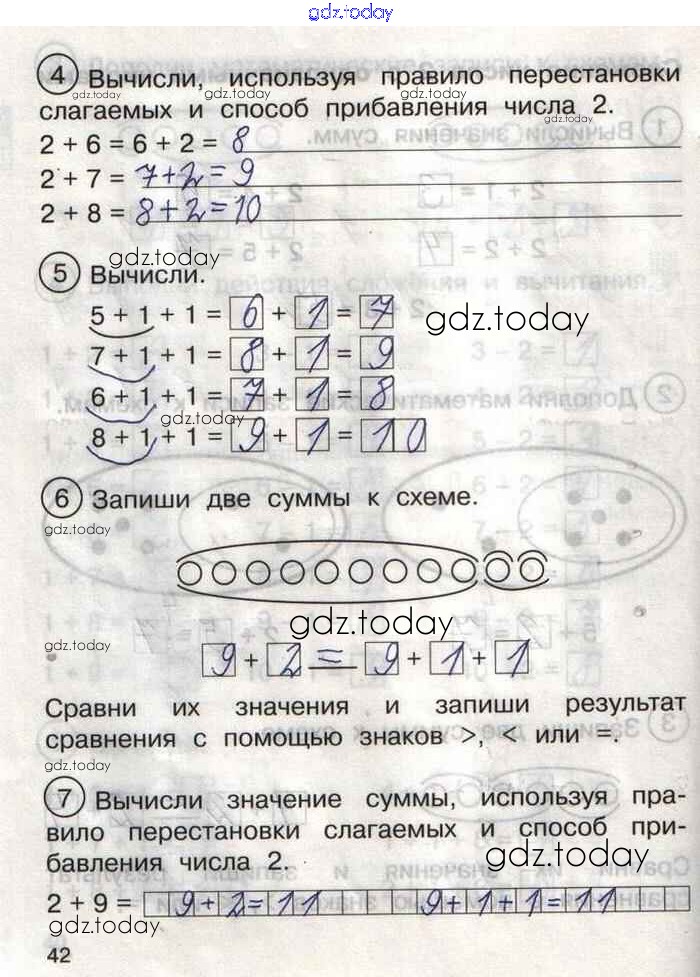 gdz.today
4 Вычисли, используя правило перестановки
gdz.today gdz.today gdz.today
слагаемых и способ прибавления числа 2.
gdz.today
2 + 6 = 6 + 2 = 8
2 + 7 = 7+2=9
2 + 8 = 8+2=10
gdz.today
5 Вычисли.
5 + 1 + 1 = 6 + 1 = 7
gdz.today
7 + 1 + 1 = 8 + 1 = 9
6 + 1 + 1 = 7 + 1 = 8
gdz.today
8 + 1 + 1 = 9 + 1 = 10
6 Запиши две суммы к схеме.
gdz.today
gdz.today
gdz.today
9 + 2 = 9 + 1 + 1
Сравни их значения и запиши результат
сравнения с помощью знаков >, < или =.
gdz.today
7 Вычисли значение суммы, используя пра-
вило перестановки слагаемых и способ при-
gdz.today
бавления числа 2.
2 + 9 = 9+2=11 9+1+1=11
gdz.today
42